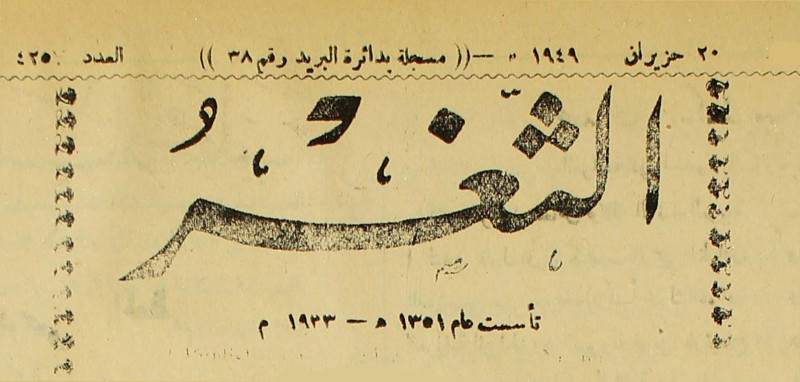 ٢٠ حزيران ١٩٤٩ م — (( مسجلة بدائرة البريد رقم ٣٨ )) العدد ٤٢٥٠
الثَّغْرُ
تأسست عام ١٣٥١ ه — ١٩٣٣ م